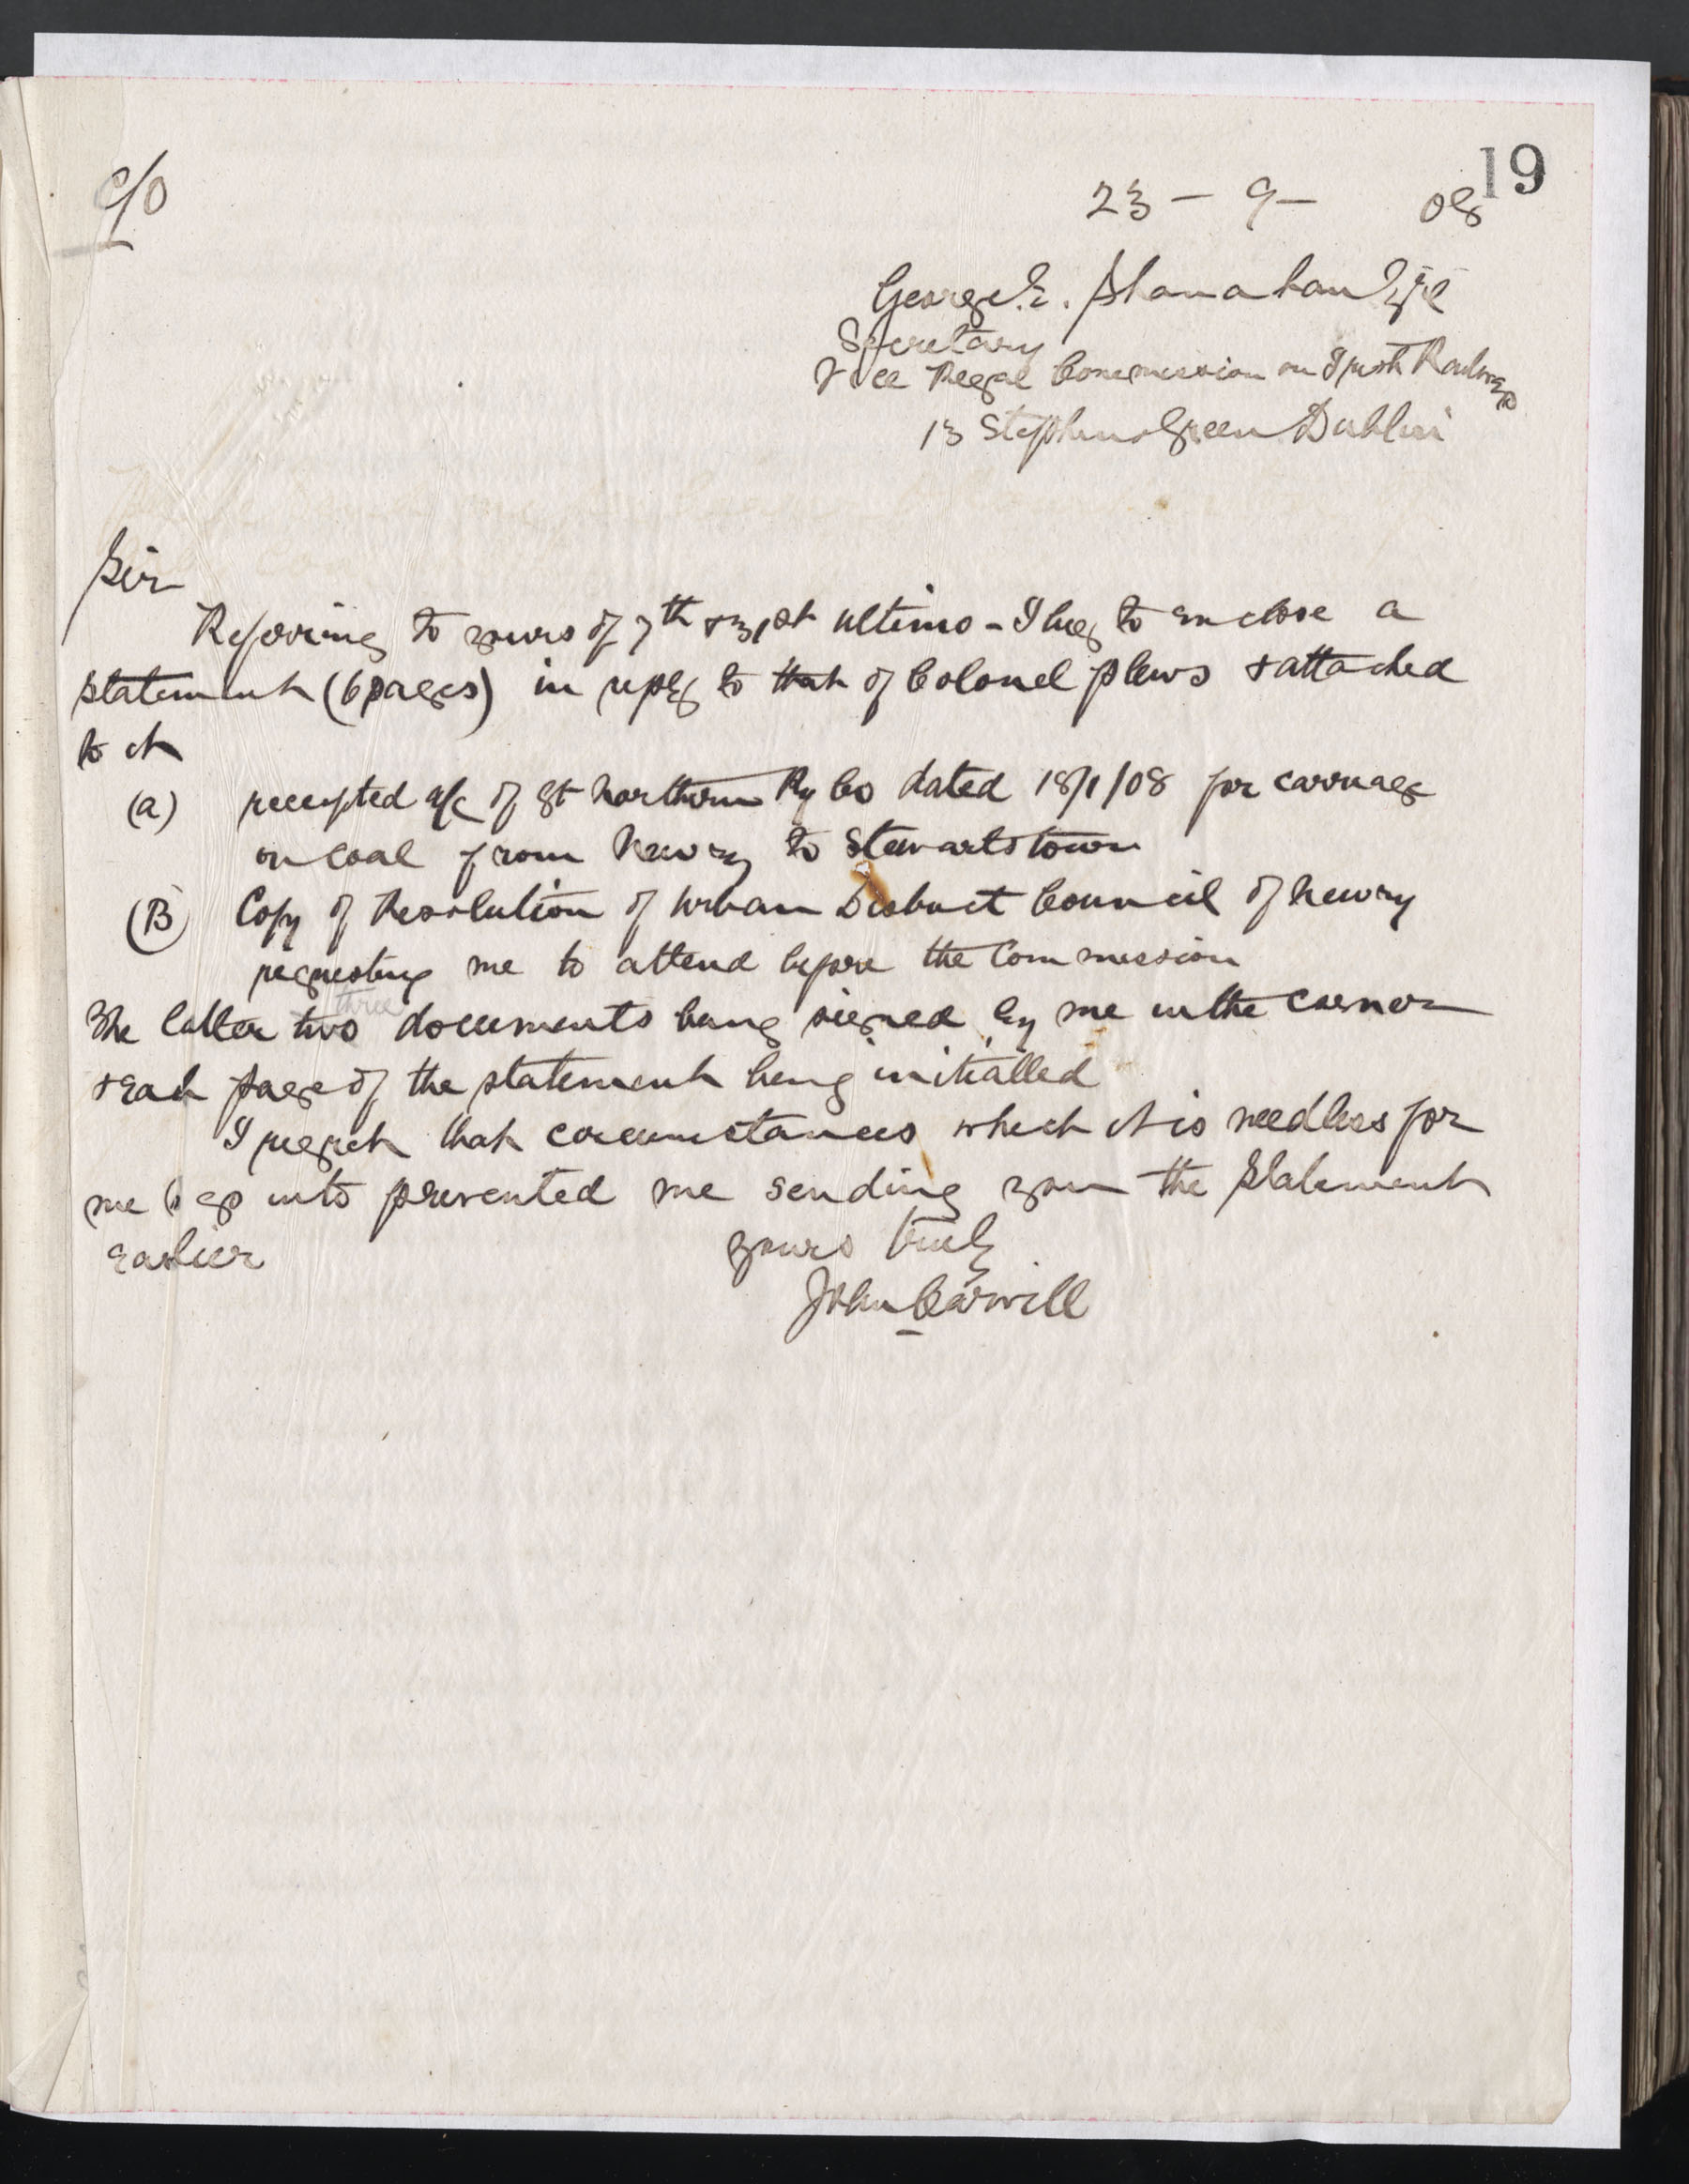 19
c/o
23 - 9 - 08
George E. Shanahan Esq
Secretary
Vice Regal Commission on Irish Railways
13 Stephens Green Dublin
Sir
Referring to yours of 7th & 31st ultimo - I beg to enclose a
statement (6 pages) in reply to that of Colonel Plews & attached
to it
(a) receipted a/c of Gt Northern Ry Co dated 18/1/08 for carriage
on coal from Newry to Stewartstown
(B) Copy of Resolution of Urban District Council of Newry
requesting me to attend before the Commission
three
The latter two documents being signed by me in the corner
& each page of the statement being initialled
I regret that circumstances which it is needless for
me to go into prevented me sending you the statement
earlier
yours truly
John Carvill